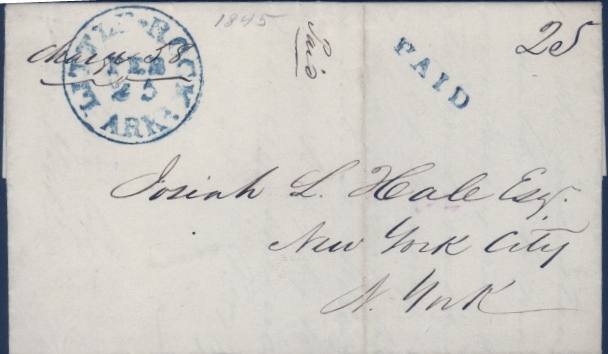 1845
Paid
25
PAID
LITTLE-ROCK
Charge 58
FEB
25
ARK.
Josiah L. Hale Esq.
New York City
N. York